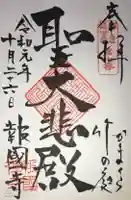 奉拝
かまくら
竹の庭
聖大悲殿
報國寺
令和元年
十月二十六日